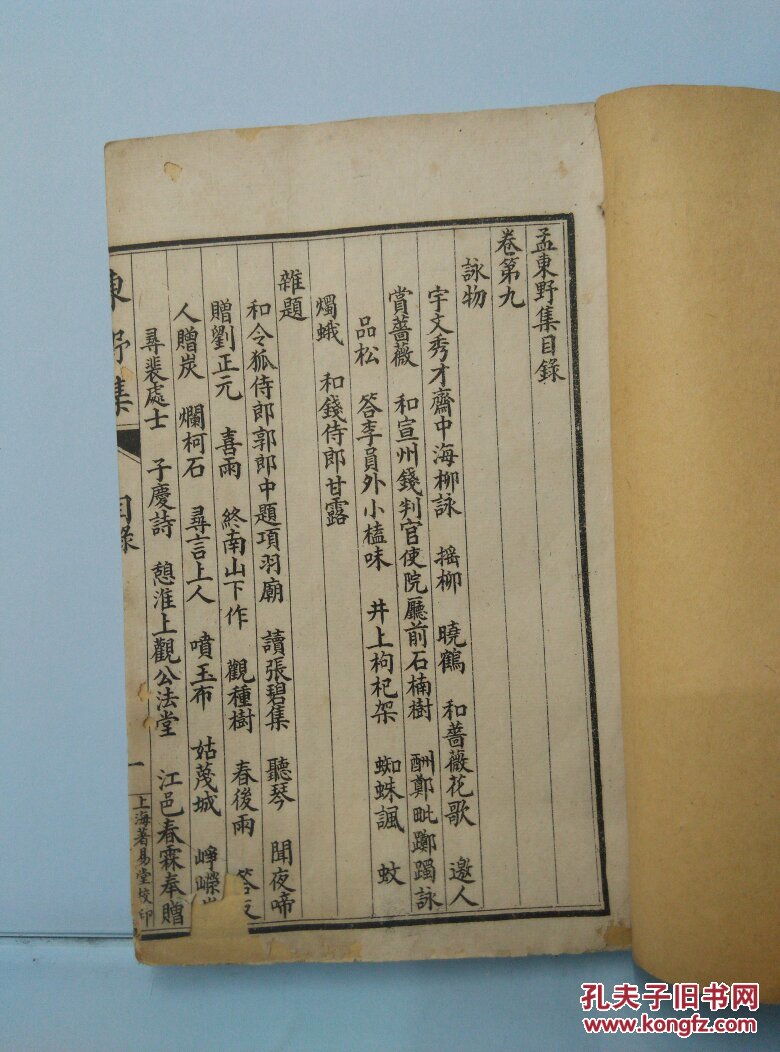 孟東野集目錄
卷第九
詠物
宇文秀才齋中海柳詠 摇柳 曉鶴 和薔薇花歌 邀人
賞薔薇 和宣州錢判官使院廳前石楠樹 酬鄭毗躑躅詠
品松 答李員外小榼味 井上枸杞架 蜘蛛諷 蚊
燭蛾 和錢侍郎甘露
雜題
和令狐侍郎郭郎中題項羽廟 讀張碧集 聽琴 聞夜啼
贈劉正元 喜雨 終南山下作 觀種樹 春後雨 答友
人贈炭 爛柯石 尋言上人 噴玉布 姑蔑城 崢嶸
尋裴處士 子慶詩 憩淮上觀公法堂 江邑春霖奉贈
東野集
目錄
一
上海著易堂校印
孔夫子旧书网
www.kongfz.com